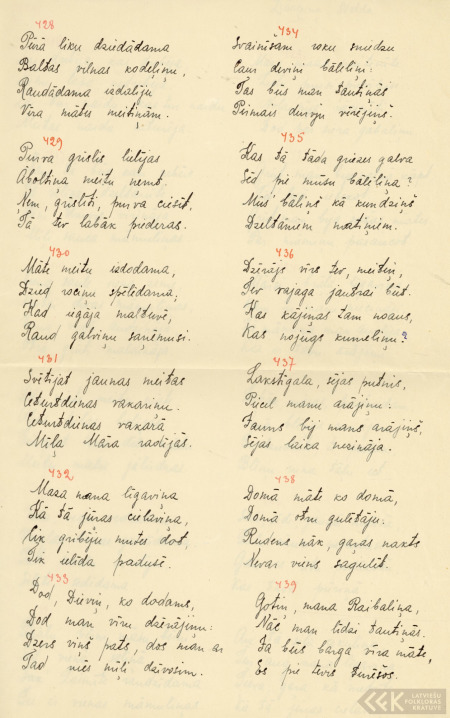 428
Pūrā liku dziedādama
Baltas vilnas kodeliņu,
Raudādama izdalīju
Vīra mātes meitiņām.
429
Purva grīslis lielījas
Āboltiņa meitu ņemt.
Ņem, grīslīti, purva ciesu,
Tā tev labāk piederas.
430
Māte meitu izdodama,
Dzied rociņu spēlēdama;
Kad iegāja maltuvē,
Raud galviņu saņēmusi.
431
Svētījat jaunas meitas
Ceturtdienas vakariņu.
Ceturtdienas vakarā
Mīļa Māra radījās.
432
Maza mana līgaviņa
Kā tā jūras cielaviņa,
Cik gribēju mutes dot,
Tik ielīda padusē.
433
Dod, Dieviņ, ko dodams,
Dod man vīru dzērājiņu:
Dzers viņš pats, dos man ar
Tad mēs mīļi dzīvosim.
434
Svainīšam roku sniedzu
Caur deviņi bāleliņi:
Tas būs man tautiņās
Pirmais durvju vērējiņš.
435
Kas tā tāda griezes galva
Sēd pie mūsu bāliliņa?
Mūs' bāliņš kā kundziņš
Dzeltāniem matiņiem.
436
Dzērājs vīrs tev, meitiņ,
Tev vajaga jautrai būt.
Kas kājiņas tam noaus,
Kas nojūgs kumeliņu?
437
Lakstīgala, sējas putnis,
Piecel manu arājiņu.
Jauns bij mans arājiņš,
Sējas laika nezināja.
438
Domā māte ko domā,
Domā otru gulētāju.
Rudens nāk, gaŗas nakts
Nevar viens sagulēt.
439
Gotiņ, mana Raibaliņa,
Nāc man līdzi tautiņās.
Ja būs barga vīra māte,
Es pie tevis turēšos.
LATVIEŠU
FOLKLORAS
KRĀTUVE